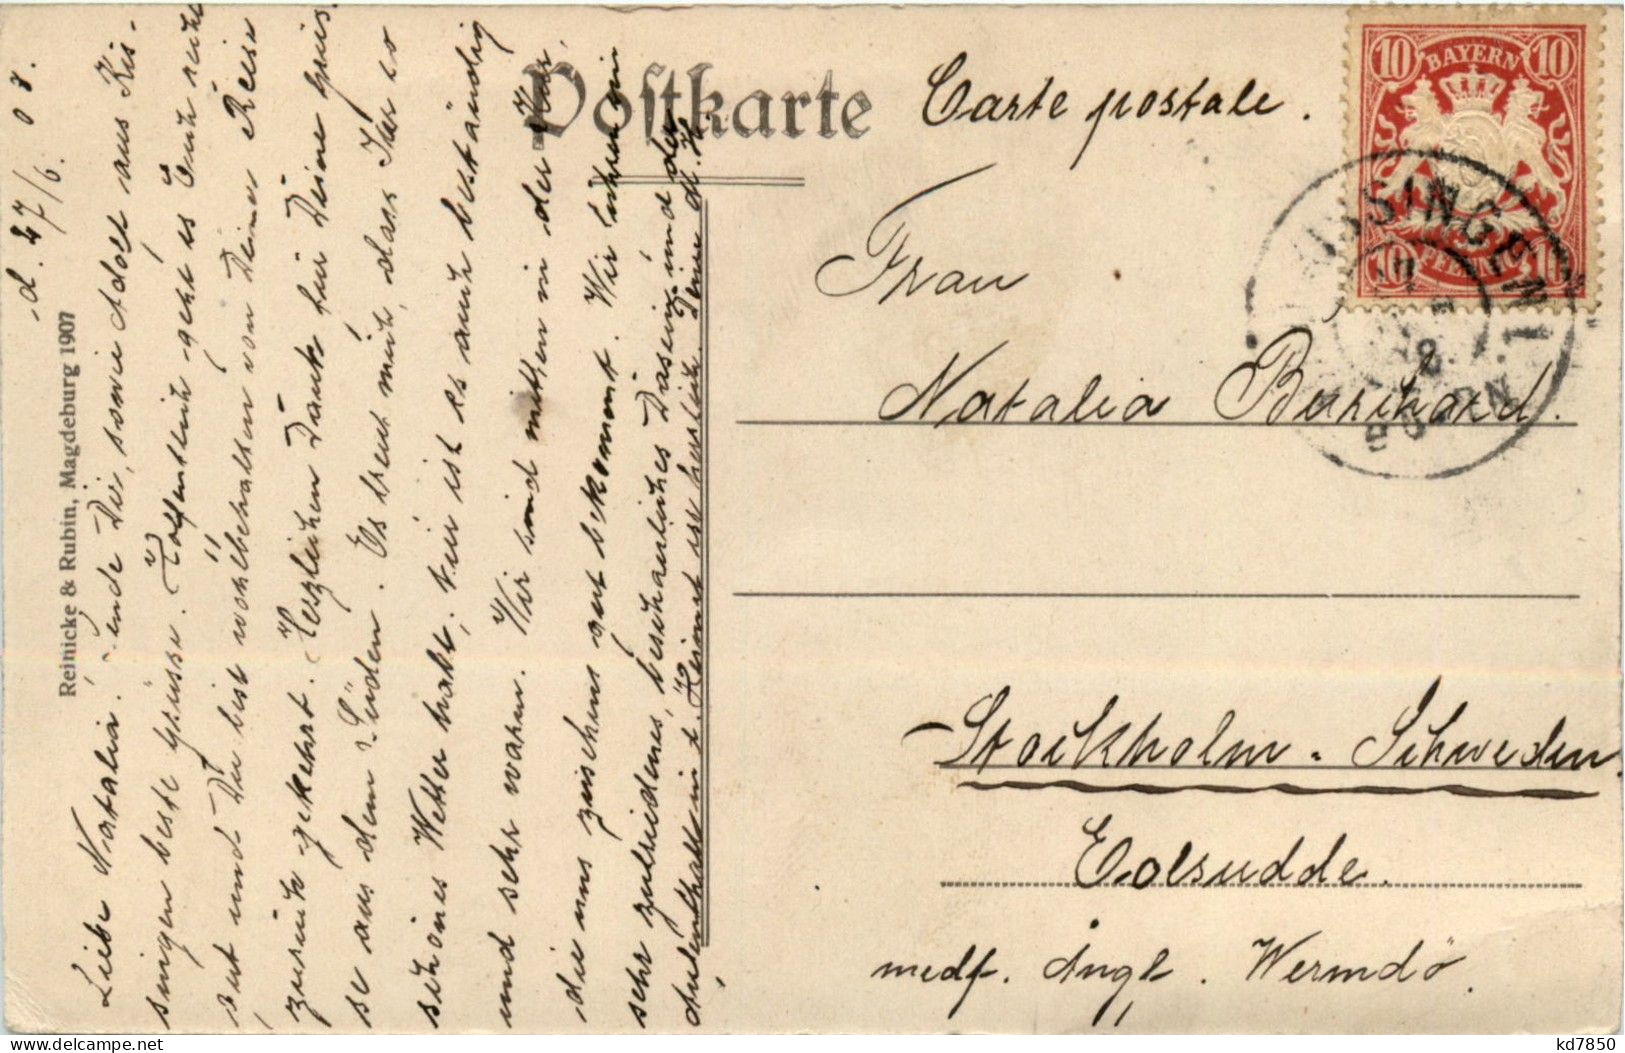 d. 27/6. 08.
Liebe Natalia. Sende Dir, sowie Adolf aus Kis-
singen beste Grüsse. Hoffentlich geht es Euch recht
gut und Du bist wohlbehalten von Deiner Reise
zurück gekehrt. Herzlichen Dank für Deine Grüs-
se aus dem Süden. Es freut mich, dass Ihr so
schönes Wetter hattet; hier ist es auch beständig
und sehr warm. Wir sind mitten in der Kur,
die uns zusehens gut bekommt. Wir führen ein
sehr zufriedenes, beschauliches Dasein, und der
Aufenthalt ist herrlich. Deine M. H.
Reinicke & Rubin, Magdeburg 1907
Postkarte
Carte postale.
BAYERN
10 10
10 PFENNIG 10
KISSINGEN
Frau
Natalia Burchard.
Stockholm - Schweden.
Eolsudde.
medf. Ångf. Wermdö.
kd7850